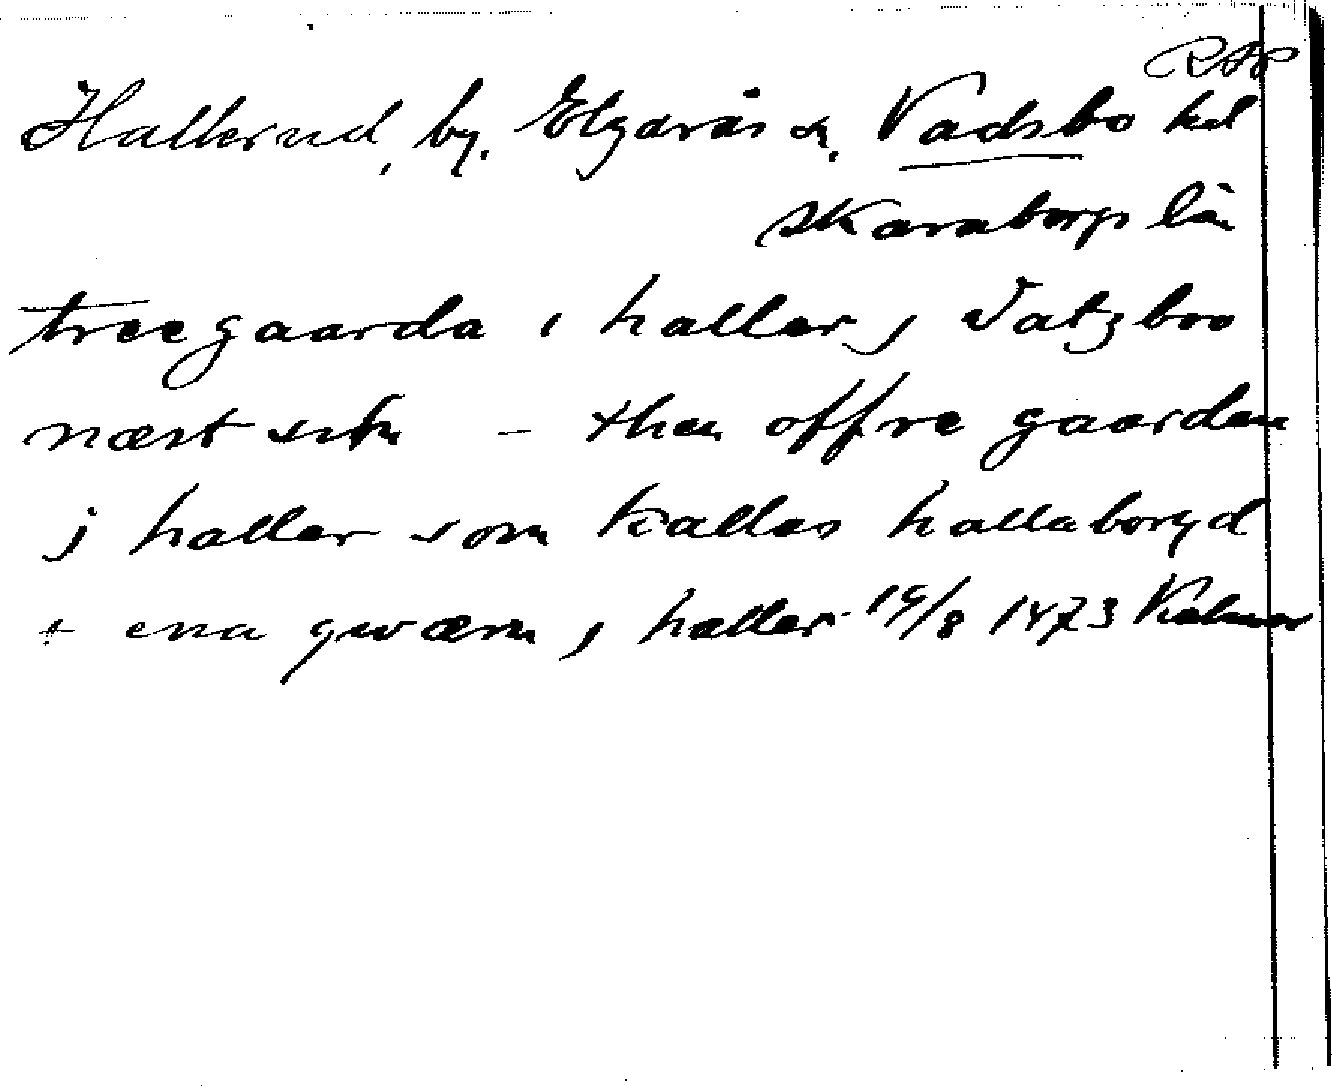 RAP
Hallerud, by, Elgarås sn, Vadsbo hd
Skaraborgs län
tree gaarda i haller j Vatzboo
næst sitn – then offre gaarden
j haller som kallas hallaboryd
+ ena qwærn j haller 15/8 1473 Kalmar